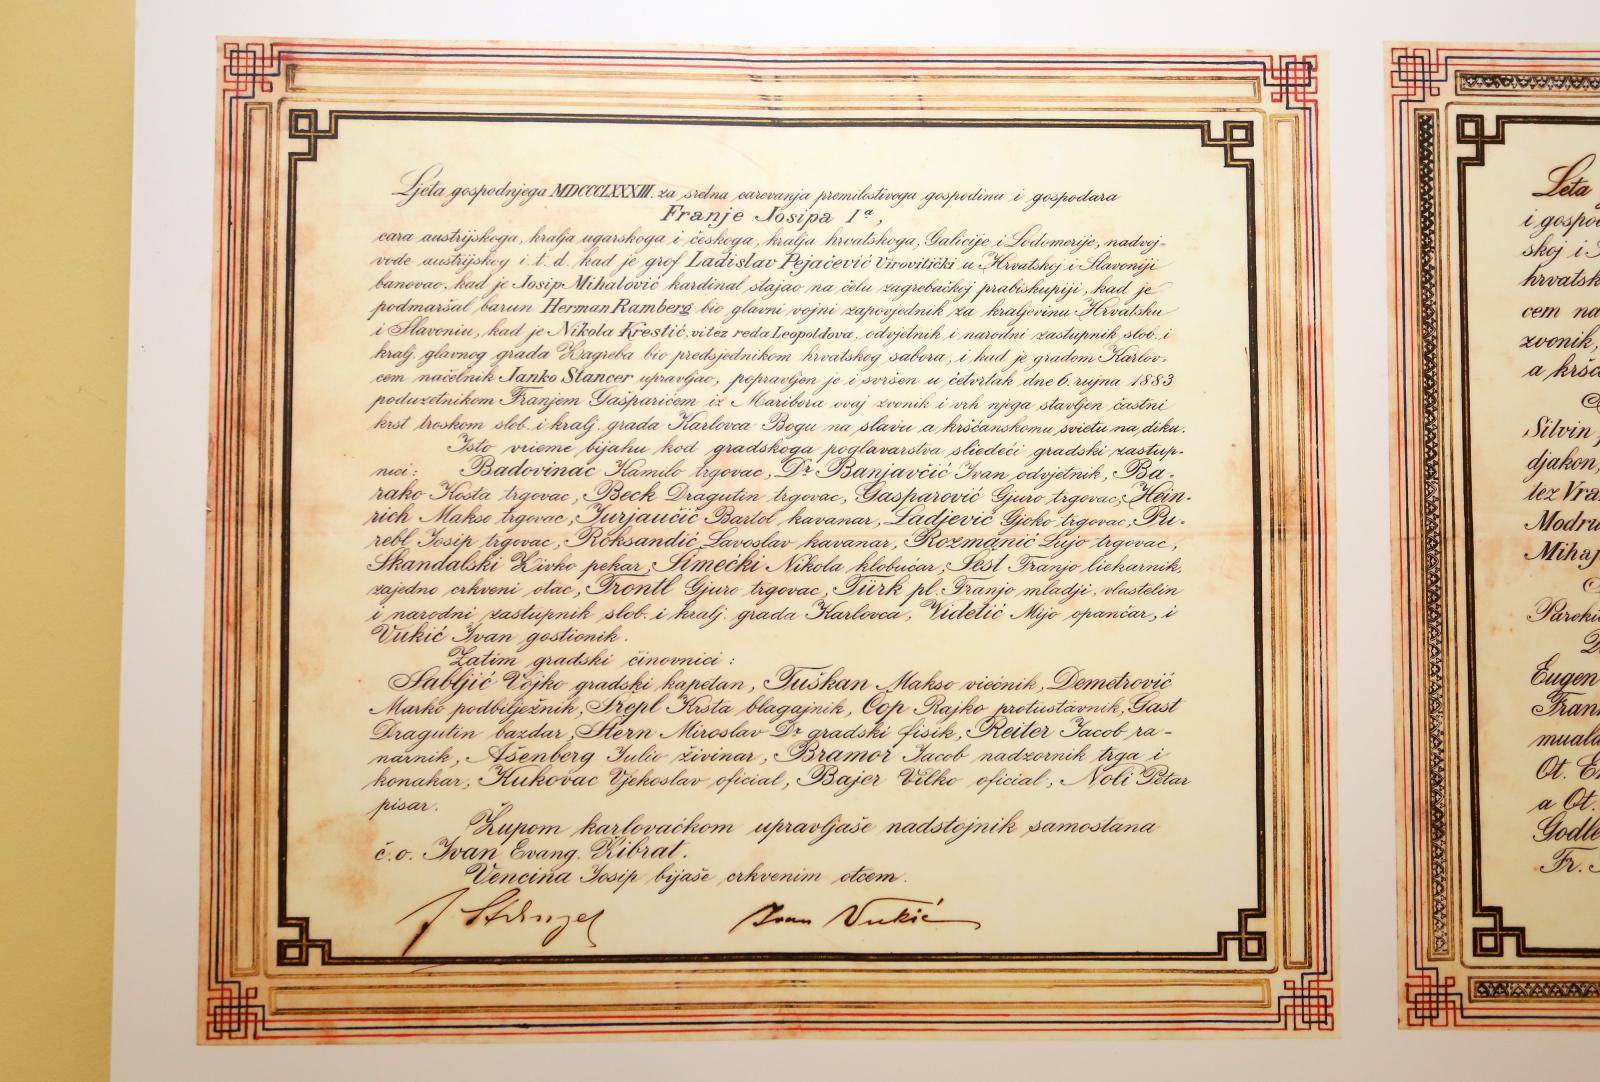 Ljeta gospodnjega MDCCCLXXXIII. za sretna carevanja premilostivoga gospodina i gospodara
Franje Josipa Iª,
cara austrijskoga, kralja ugarskoga i českoga, kralja hrvatskoga, Galicije i Lodomerije, nadvoj-
vode austrijskog i. t. d. kad je grof Ladislav Pejačević Virovitički u Hrvatskoj i Slavoniji
banovao, kad je Josip Mihalović kardinal stajao na čelu zagrebačkoj prabiskupiji, kad je
podmaršal barun Herman Ramberg bio glavni vojni zapovjednik za kraljevinu Hrvatsku
i Slavoniu, kad je Nikola Krestić, vitez reda Leopoldova, odvjetnik i narodni zastupnik slob. i
kralj. glavnog grada Zagreba bio predsjednikom hrvatskog sabora, i kad je gradom Karlov-
cem načelnik Janko Stancer upravljao, popravljen je i svršen u četvrtak dne 6. rujna 1883
poduzetnikom Franjem Gasparićem iz Maribora ovaj zvonik i vrh njega stavljen častni
krst troskom slob. i kralj. grada Karlovca Bogu na slavu a kršćanskomu svietu na diku.
Isto vrieme bijahu kod gradskoga poglavarstva sliedeći gradski zastup-
nici: Badovinac Kamilo trgovac, Dr. Banjavčić Ivan odvjetnik, Ba-
rako Kosta trgovac, Beck Dragutin trgovac, Gasparović Gjuro trgovac, Hein-
rich Makso trgovac, Jurjaučić Bartol kavanar, Ladjević Gjoko trgovac, Pu-
rebl Josip trgovac, Roksandić Lavoslav kavanar, Rozmanić Lujo trgovac,
Skandalski Živko pekar, Šimečki Nikola klobučar, Šest Franjo liekarnik,
zajedno crkveni otac, Trontl Gjuro trgovac, Türk pl. Franjo mladji, vlastelin
i narodni zastupnik slob. i kralj. grada Karlovca, Videtić Mijo opančar, i
Vukić Ivan gostionik.
Zatim gradski činovnici:
Sabljić Vojko gradski kapetan, Tuškan Makso viećnik, Demetrović
Marko podbilježnik, Šrepl Krsta blagajnik, Čop Rajko protustavnik, Gast
Dragutin bazdar, Stern Miroslav Dr. gradski fisik, Reiter Jacob ra-
narnik, Ašenberg Julio živinar, Bramor Jacob nadzornik trga i
konakar, Kukovac Vjekoslav oficial, Bajer Vilko oficial, Noli Petar
pisar.
Župom karlovačkom upravljaše nadstojnik samostana
č. o. Ivan Evang. Ribrat.
Vencina Josip bijaše crkvenim otcem.
Ivan Vukić
Leta
i gospo
skoj i
hrvatsk
cem na
zvonik,
a kršća
Silvin
djakon,
tez Vra
Modru
Mihaj
Parohi
Eugen
Fran
muala
Ot. E
a Ot.
Godle
Fr.